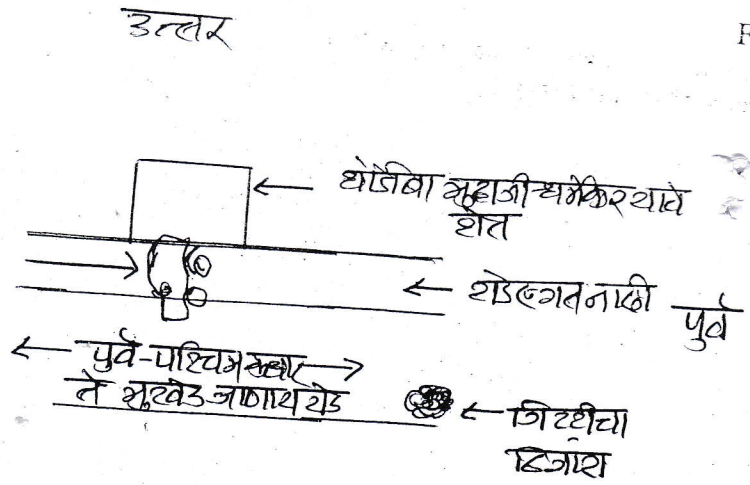 उत्तर
F
धोंडीबा मुद्दाजी धर्मेकर यांचे
शेत
रोडलगत नाली
पुर्व
पुर्व-पश्चिम
ते मुखेड जाणारा रोड
गिट्टीचा
ढिगारा